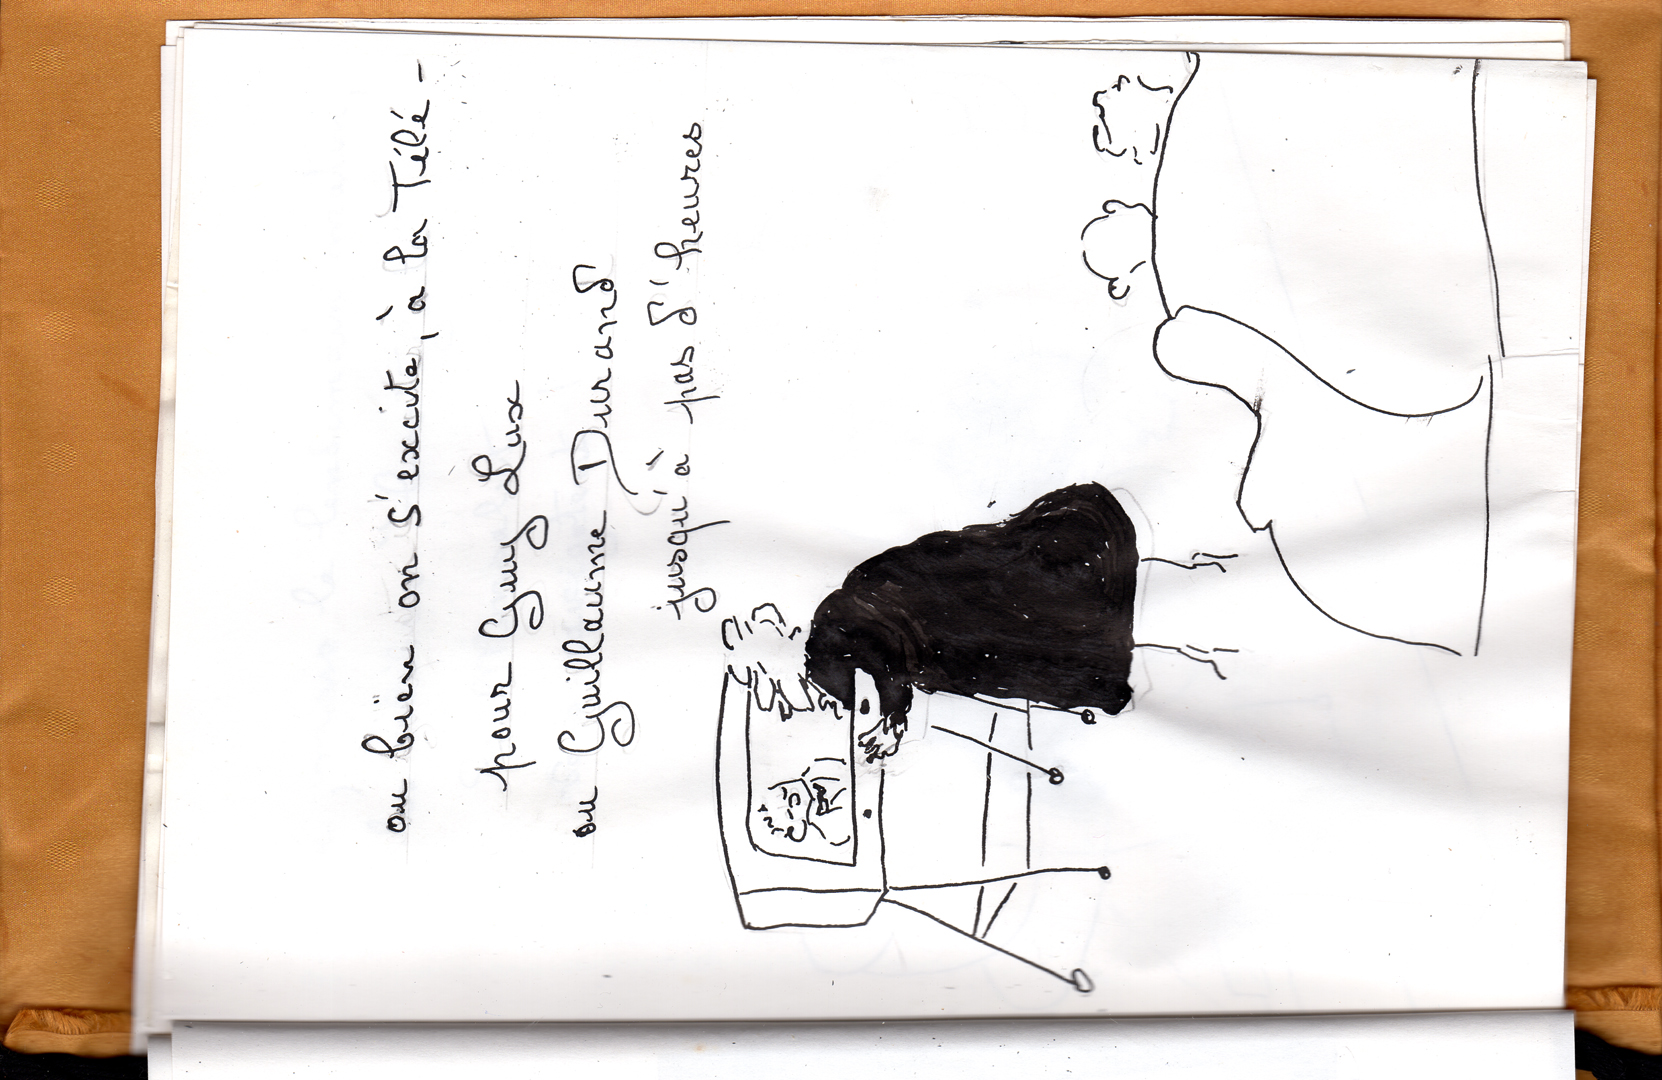 ou bien on s'excite, à la Télé -
pour Guy Lux
ou Guillaume Durand
jusqu'à pas d'heures